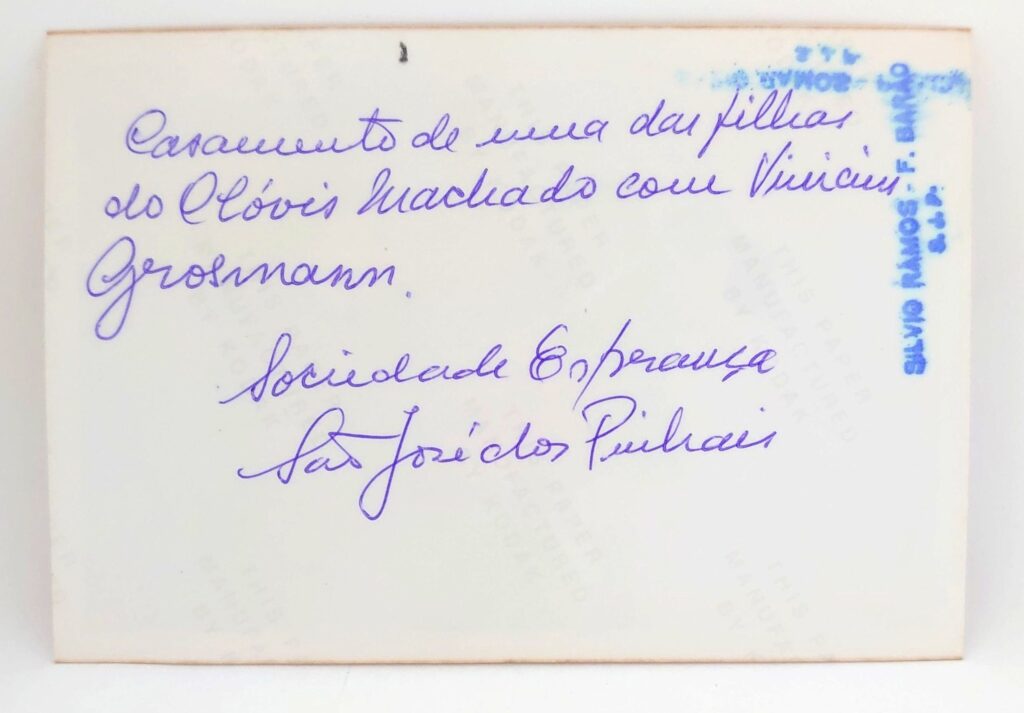 Casamento de uma das filhas
do Clóvis Machado com Vinicius
Grosmann.
Sociedade Esperança
São José dos Pinhais
SILVIO RAMOS - F. BARÃO
S.J.P.
THIS PAPER
MANUFACTURED
BY KODAK